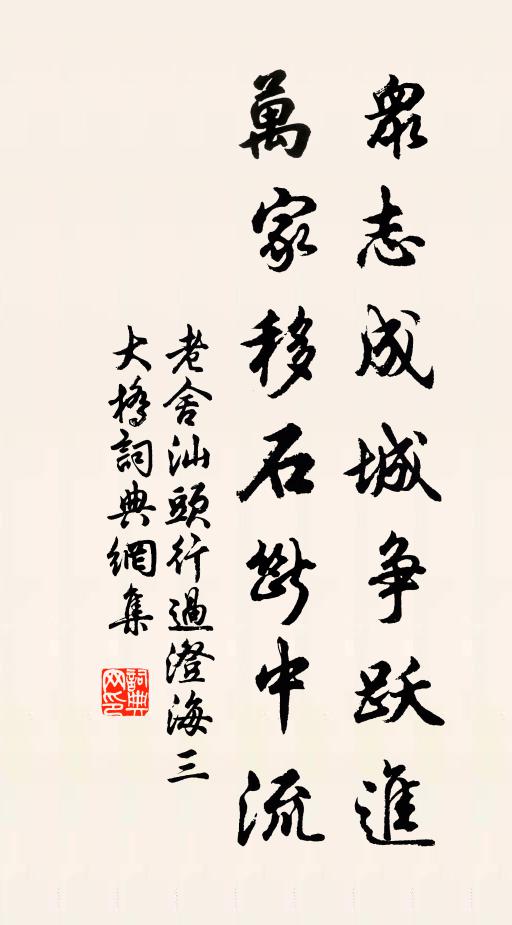 眾志成城争跃進
萬家移石斷中流
老舍汕頭行過澄海三
大橋詞典網集
詞典
网印